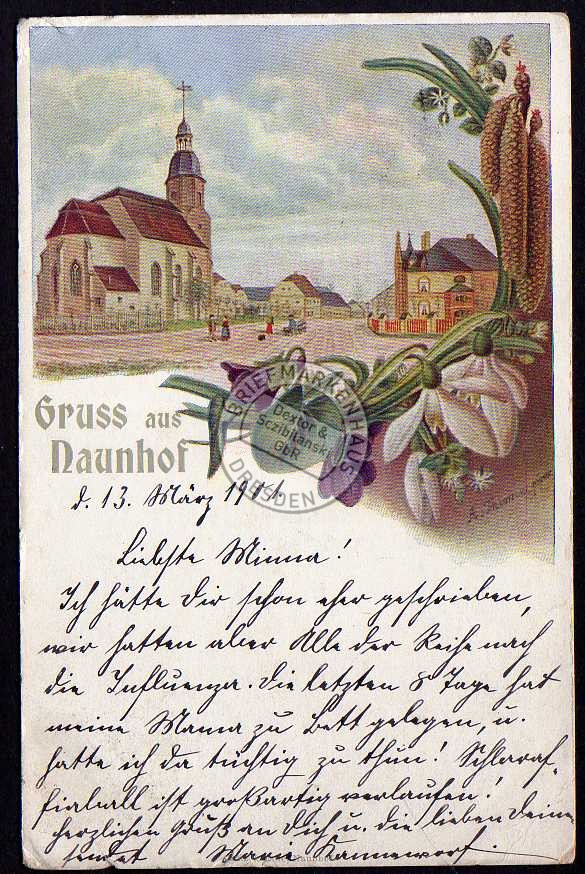 Gruss aus
Naunhof
BRIEFMARKENHAUS
Dextor &
Sczibilanski
GbR
DRESDEN
d. 13. März 1901.
Liebste Minna!
Ich hätte Dir schon eher geschrieben,
wir hatten aber Alle der Reihe nach
die Influenza. Die letzten 8 Tage hat
meine Mama zu Bett gelegen, u.
hatte ich da tüchtig zu thun! Schlaraf-
fiaball ist großartig verlaufen!
herzlichen Gruß an Dich u. die lieben Deinen
sendet Marie Kannewurf.